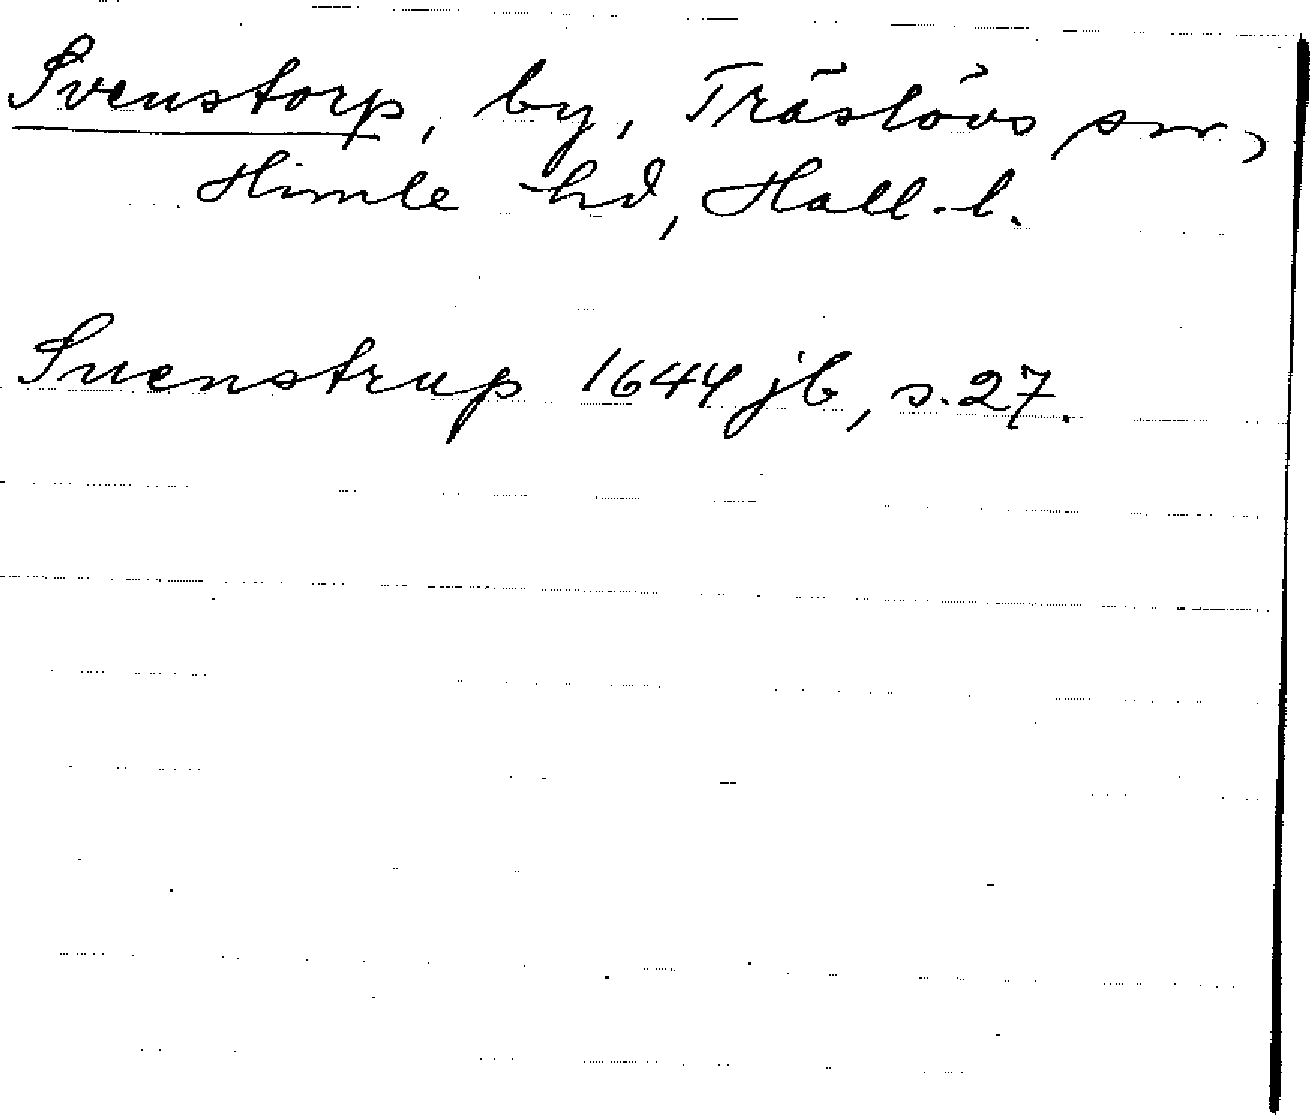 Svenstorp, by, Träslövs sn,
Himle hd, Hall. l.
Suenstrup 1644 jb, s. 27.